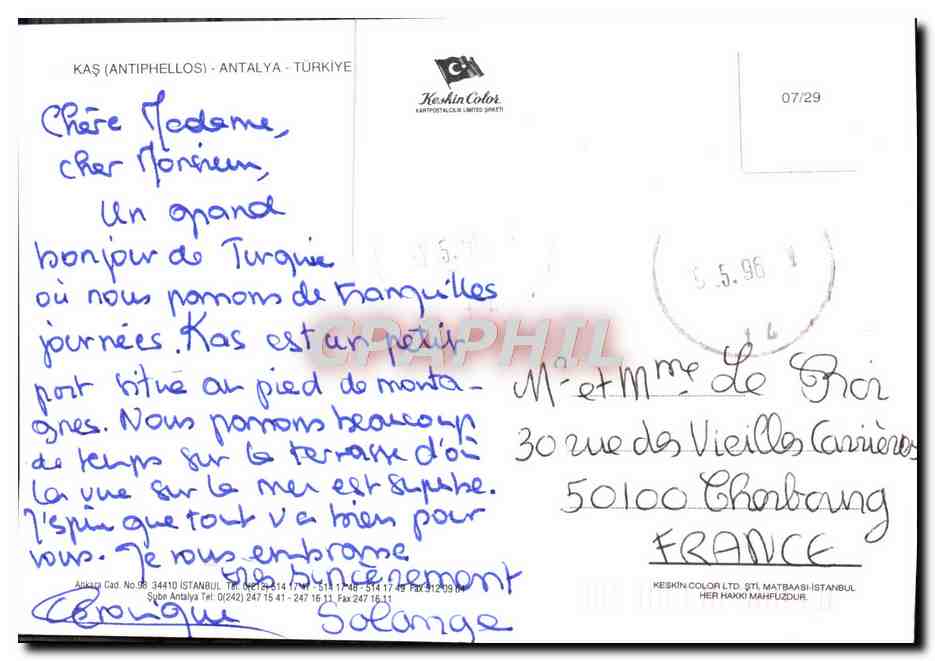 KAŞ (ANTIPHELLOS) - ANTALYA - TÜRKİYE
Keskin Color
KARTPOSTALCILIK LIMITED ŞİRKETİ
07/29
Chère Madame,
cher Monsieur,
Un grand
bonjour de Turquie
où nous passons de tranquilles
journées. Kas est un petit
port situé au pied de monta-
gnes. Nous passons beaucoup
de temps sur la terrasse d'où
la vue sur la mer est superbe.
J'espère que tout va bien pour
vous. Je vous embrasse
très sincèrement
Solange
5.5.96
CPAPHIL
Mr et Mme Le
30 rue des Vieilles Carrières
50100 Cherbourg
FRANCE
Ankara Cad. No.98 34410 İSTANBUL Tel: 0(212) 514 17 47 - 514 17 48 - 514 17 49 Fax 512 09 64
Şube Antalya Tel: 0(242) 247 15 41 - 247 16 11 Fax 247 16 11
KESKİN COLOR LTD. ŞTİ. MATBAASI-İSTANBUL
HER HAKKI MAHFUZDUR.